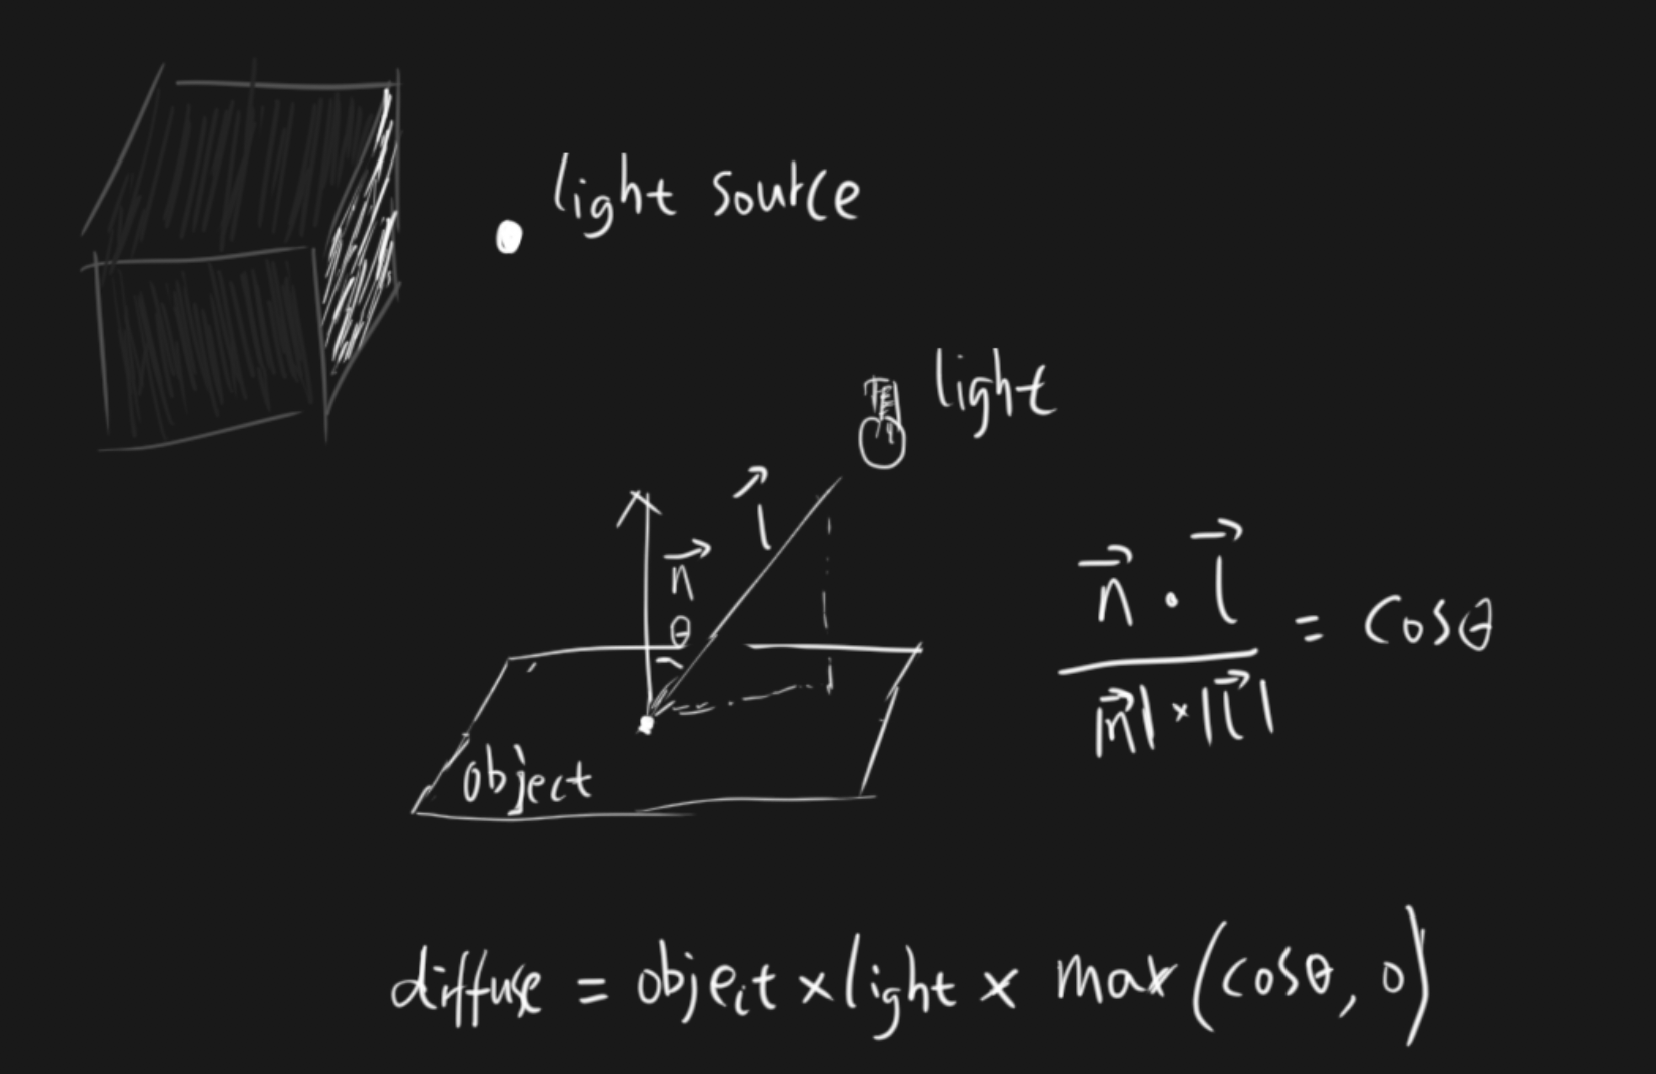 light source
light
l⃗
n⃗
θ
object
n⃗ · l⃗ / |n⃗| × |l⃗| = cosθ
diffuse = object × light × max(cosθ, 0)